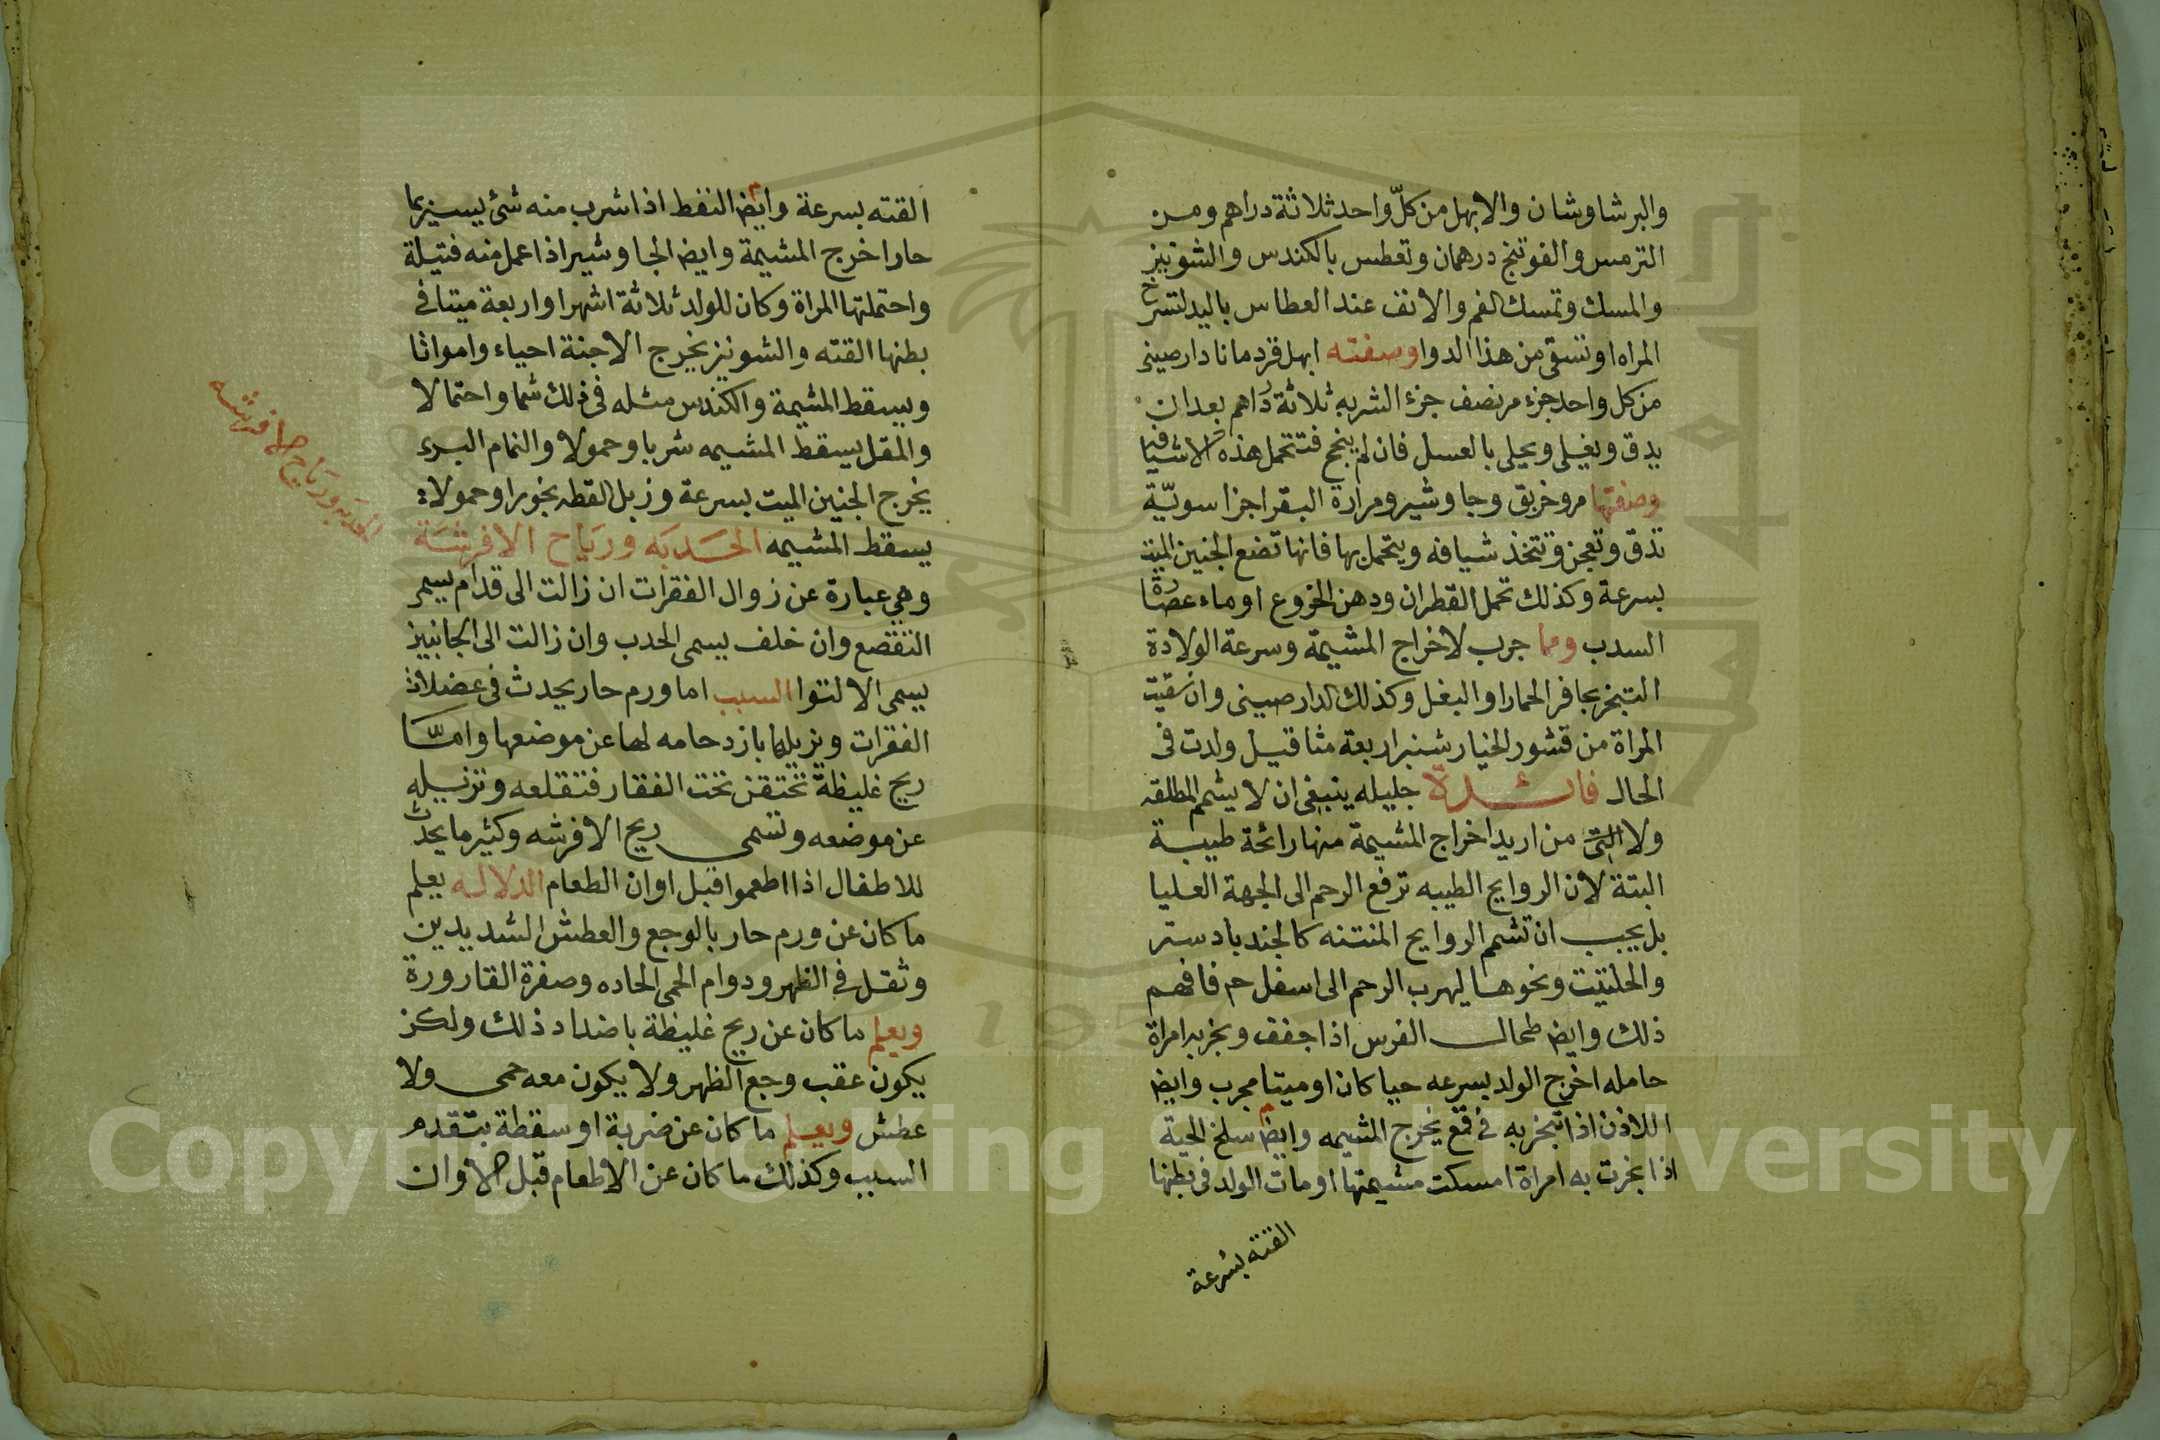 والبرشاوشان والابهل من كلّ واحد ثلاثة دراهم ومن
الترمس والفوتنج درهمان وتعطس بالكندس والشونيز
والمسك وتمسك الفم والانف عند العطاس باليد لتسرح
المراه او تسقى من هذا الدوا وصفته ابهل قردمانا دارصينى
من كل واحد جزء مر نصف جزء الشربه ثلاثة دراهم بعد ان
يدق ويغلى ويحلى بالعسل فان لم ينجح فتتحمل هذه الاشيافيا
وصفتها مر وخربق وجاوشير ومرارة البقر اجزا سويّة
تدق وتعجن وتتخذ شيافه ويتحمل بها فانها تضع الجنين الميت
بسرعة وكذلك تحمل القطران ودهن الخروع او ماء عصارة
السدب ومما جرب لاخراج المشيمة وسرعة الولادة
التبخر بحافر الحمار او البغل وكذلك الدارصينى وان سقيت
المراة من قشور الخيار شنبر اربعة مثاقيل ولدت فى
الحال فائدة جليله ينبغى ان لا يشم المطلقه
ولا التى من اريد اخراج المشيمة منها رائحة طيبة
البتة لان الروايح الطيبه ترفع الرحم الى الجهة العليا
بل يجب ان تشمم الروايح المنتنه كالجندبادستر
والحلتيت ونحوها ليهرب الرحم الى اسفل حم فافهم
ذلك وايض طحال الفرس اذا جفف وبخر به امراة
حامله اخرج الولد بسرعه حيا كان او ميتا مجرب وايض
اللاذن اذا تبخر به فى قمع يخرج المشيمه وايض سلخ الحية
اذا بخرت به امراة امسكت مشيمتها او مات الولد فى بطنها
القته بسرعة
القته بسرعة وايض النفط اذا شرب منه شئ يسير بما
حار اخرج المشيمة وايض الجاوشير اذا عمل منه فتيلة
واحتملتها المراة وكان للولد ثلاثة اشهر او اربعة ميتا فى
بطنها القته والشونيز يخرج الاجنة احياء وامواتا
ويسقط المشيمة والكندس مثله فى ذلك شما واحتمالا
والمقل يسقط المشيمه شربا وحمولا والنمام البرى
يخرج الجنين الميت بسرعة وزبل القطه بخورا وحمولا
يسقط المشيمه الحدبه ورياح الافرشة
وهى عبارة عن زوال الفقرات ان زالت الى قدام يسمى
التقصع وان خلف يسمى الحدب وان زالت الى الجانبين
يسمى الالتوا السبب اما ورم حار يحدث فى عضلات
الفقرات ويزيلها بازدحامه لها عن موضعها وامّا
ريح غليظة تحتقن تحت الفقار فتقلعه وتزيله
عن موضعه وتسمى ريح الافرشه وكثير ما يحدث
للاطفال اذا اطعموا قبل اوان الطعام الدلاله يعلم
ما كان عن ورم حار بالوجع والعطش الشديدين
وثقل فى الظهر ودوام الحمى الحاده وصفرة القارورة
ويعلم ما كان عن ريح غليظة باضداد ذلك ولكن
يكون عقب وجع الظهر ولا يكون معه حمى ولا
عطش ويعلم ما كان عن ضربة او سقطة بتقدم
السبب وكذلك ما كان عن الاطعام قبل الاوان
الحدبه ورياح الافرشه
Copyright © King Saud University